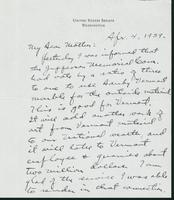 UNITED STATES SENATE
WASHINGTON
Apr. 4, 1939.
My Dear Mother:
Yesterday I was informed that
the Jefferson Memorial Com.
had voted by a ratio of three
to one to use Danby, Vermont
marble for the outside material.
This is good for Vermont.
It will add another work of
art from Vermont material
to our national wealth, and
it will take to Vermont
employees &
two million dollars. I'm
glad of the service I was able
to render in that connection.